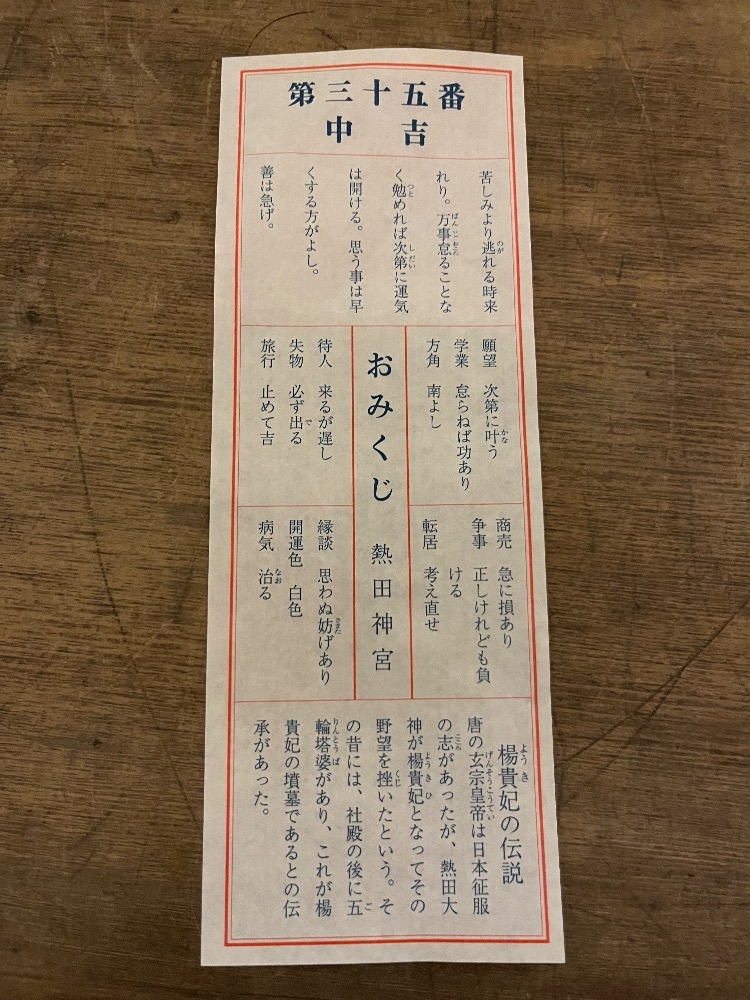 第三十五番
中吉
苦しみより逃れる時来
れり。万事怠ることな
く勉めれば次第に運気
は開ける。思う事は早
くする方がよし。
善は急げ。
願望　次第に叶う
学業　怠らねば功あり
方角　南よし
商売　急に損あり
争事　正しけれども負
ける
転居　考え直せ
おみくじ　熱田神宮
待人　来るが遅し
失物　必ず出る
旅行　止めて吉
縁談　思わぬ妨げあり
開運色　白色
病気　治る
楊貴妃の伝説
唐の玄宗皇帝は日本征服
の志があったが、熱田大
神が楊貴妃となってその
野望を挫いたという。そ
の昔には、社殿の後に五
輪塔婆があり、これが楊
貴妃の墳墓であるとの伝
承があった。